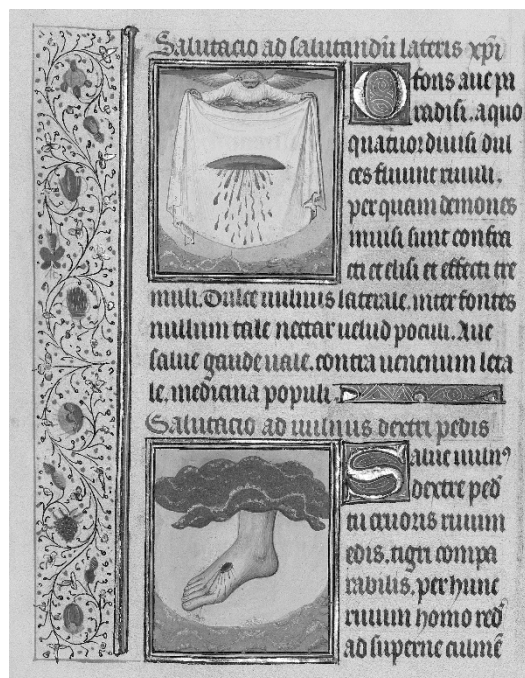 Salutacio ad salutandũ lateris xp̃i
O
fons aue pa
radisi. a quo
quatuor diuisi dul
ces fiuunt riuuli.
per quam demones
inuisi sunt confra
cti et elisi et effecti tre
muli. Dulce uulnus laterale. inter fontes
nullum tale nectar uelud poculi. Aue
salue gaude uale. contra uenenum leta
le. medicina populi.
Salutacio ad uulnus dextri pedis
Salue uuln9
dextre ped
tu cruoris riuum
edis. tigri compa
rabilis. per hunc
riuum homo red
ad superne culmẽ